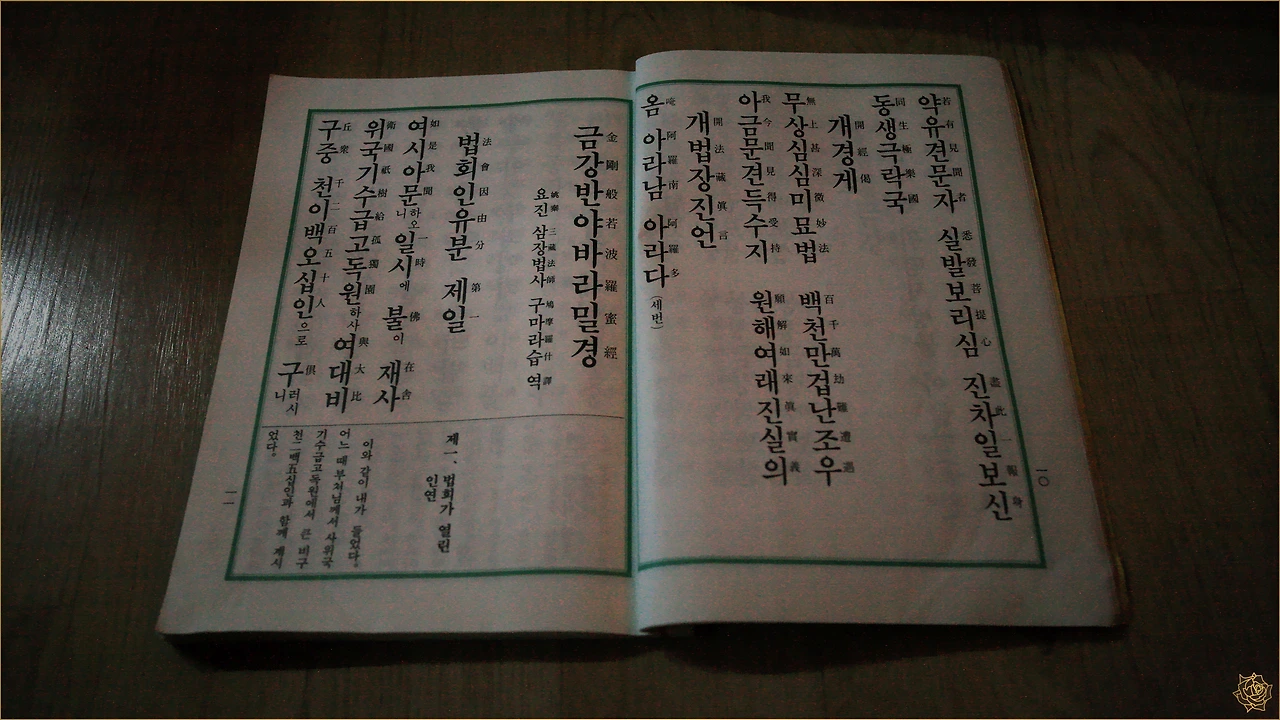 약若유有견見문聞자者 실悉발發보菩리提심心 진盡차此일一보報신身
동同생生극極락樂국國
개開경經게偈
무無상上심甚심深미微묘妙법法 백百천千만萬겁劫난難조遭우遇
아我금今문聞견見득得수受지持 원願해解여如래來진眞실實의義
개開법法장藏진眞언言
옴唵 아阿라羅남南 아阿라羅다多 (세번)
一〇
금金강剛반般야若바波라羅밀蜜경經
요姚진秦 삼三장藏법法사師 구鳩마摩라羅습什 역譯
법法회會인因유由분分 제第일一
여如시是아我문聞하오니 일一시時에 불佛이 재在사舍
위衛국國기祇수樹급給고孤독獨원園하사 여與대大비比
구丘중衆 천千이二백百오五십十인人으로 구俱러시니
제一、 법회가 열린
인연
이와 같이 내가 들었다。
어느 때 부처님께서 사위국
기수급고독원에서 큰 비구
천二백五십인과 함께 계시
었다。
一一